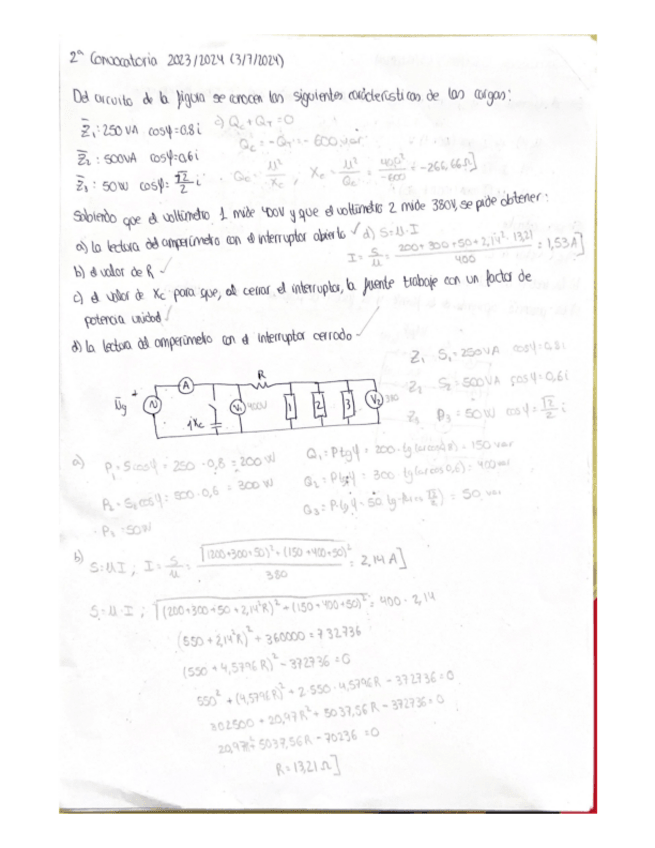 2ª Convocatoria 2023/2024 (3/7/2024)
Del circuito de la figura se conocen las siguientes características de las cargas:
Z̄₁: 250 VA cosφ=0.8 i
Z̄₂: 500VA cosφ=0,6 i
Z̄₃: 50W cosφ= √2/2 i
c) Qc + QT = 0
Qc = -QT = -600 var
Qc = U²/Xc , Xc = U²/Qc = 400²/-600 = -266,66 Ω]
Sabiendo que el voltímetro 1 mide 400V y que el voltímetro 2 mide 380V, se pide obtener:
a) la lectura del amperímetro con el interruptor abierto ✓
b) el valor de R ✓
d) S=U·I
I = S/U = 200+300+50+2,14²·13,21/400 = 1,53A]
c) el valor de Xc para que, al cerrar el interruptor, la fuente trabaje con un factor de
potencia unidad
d) la lectura del amperímetro con el interruptor cerrado
Z₁ S₁=250VA cosφ=0,8 i
Z₂ S₂=500VA cosφ=0,6 i
Z₃ P₃=50W cosφ= √2/2 i
R
Ūg + A V₁ 400V 1 2 3 V₂ 380
Xc
a) P₁=S cosφ = 250 · 0,8 = 200 W
P₂=S₂cosφ = 500 · 0,6 = 300 W
P₃ = 50W
Q₁ = P tgφ = 200 · tg (arcos 0,8) = 150 var
Q₂ = P tgφ = 300 tg (arcos 0,6) = 400 var
Q₃ = P·tgφ = 50 tg (arcos √2/2) = 50 var
b) S=UI ; I = S/U = √(200+300+50)² + (150+400+50)²/380 = 2,14 A]
S=U·I ; √(200+300+50+2,14²R)² + (150+400+50)² = 400 · 2,14
(550 + 2,14²R)² + 360000 = 732736
(550 + 4,5796 R)² - 372736 = 0
550² + (4,5796R)² + 2·550·4,5796R - 372736 = 0
302500 + 20,97R² + 5037,56R - 372736 = 0
20,97R² + 5037,56R - 70236 = 0
R = 13,21 Ω]